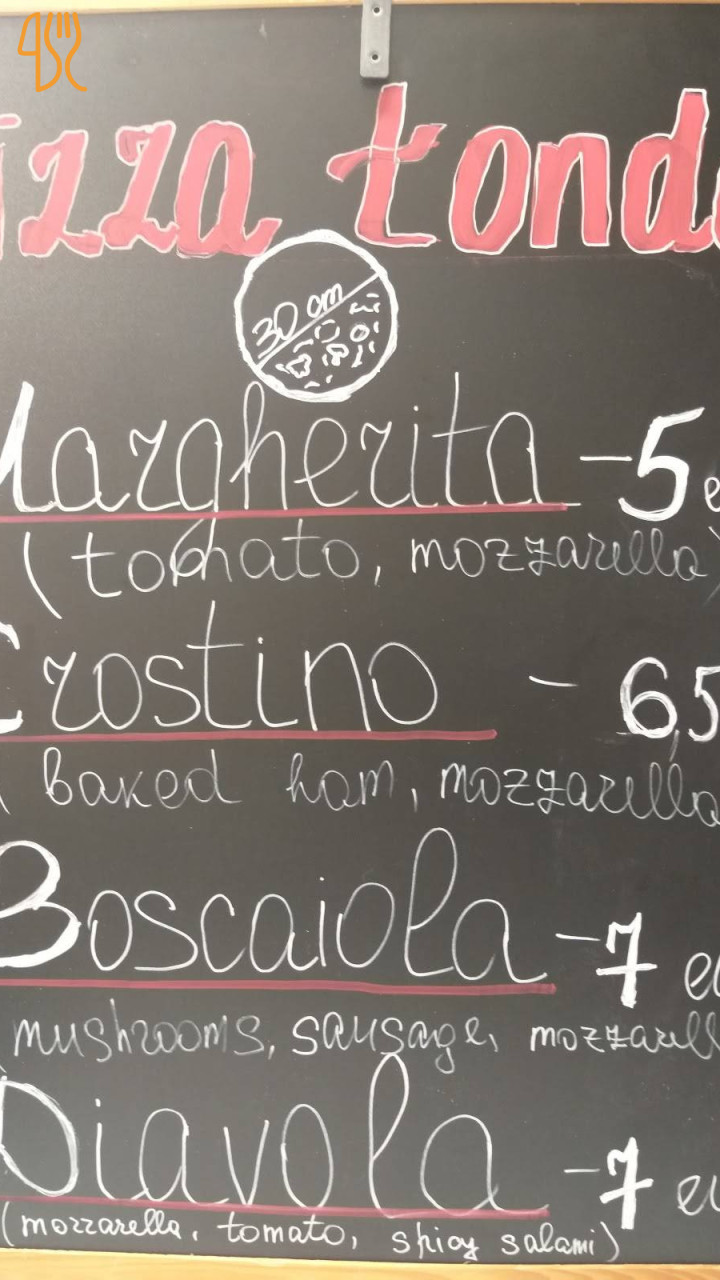 izza tond
30 cm
Margherita - 5 e
(tomato, mozzarella)
Crostino - 6,5
(baked ham, mozzarella
Boscaiola - 7 eu
mushrooms, sausage, mozzarell
Diavola - 7 eu
(mozzarella, tomato, spicy salami)